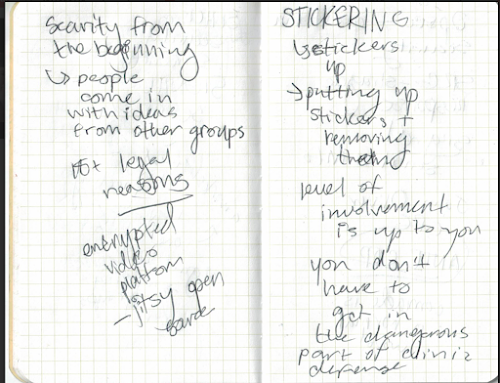 Scarity from
the beginning
↳ people
come in
with ideas
from other groups
legal
reasons
encrypted
video
platform
jitsy open
STICKERING
↳ stickers
up
→ putting up
stickers +
removing
them
level of
involvement
is up to you
you don't
have to
got in
the dangerous
part of clinic
defense